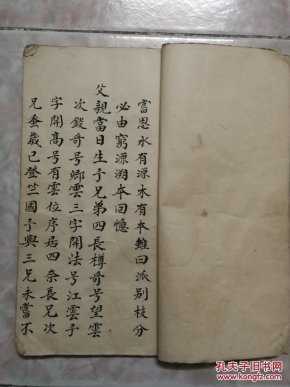 嘗思水有源木有本雖曰派別枝分
必由窮源溯本回憶
父親當日生予兄弟四長樽哥号望雲
次鋑哥号卿雲三字開法号江雲予
字開高号有雲位序居四奈長兄次
兄蚤歲已登竺國予與三兄未嘗不
孔夫子旧书网